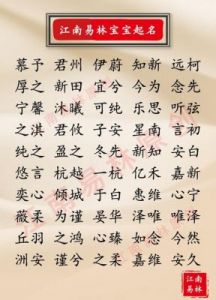 江南易林宝宝起名
慕予 君州 伊蔚 知新 远柯
厚之 新田 宜兮 今为 念先
宁馨 沐曦 可纯 乐思 听弦
之淇 君攸 子安 南言 初心
纯之 盈之 冬忆 星新 安白
悠言 杭越 一杭 亿禾 嘉新
奕心 倾城 于白 惠心 心唯
薇柔 为谨 晏华 泽唯 唯泽
丘羽 之鸿 心臻 如念 今然
洲安 谨兮 之柔 嘉维 安久
江南
易林